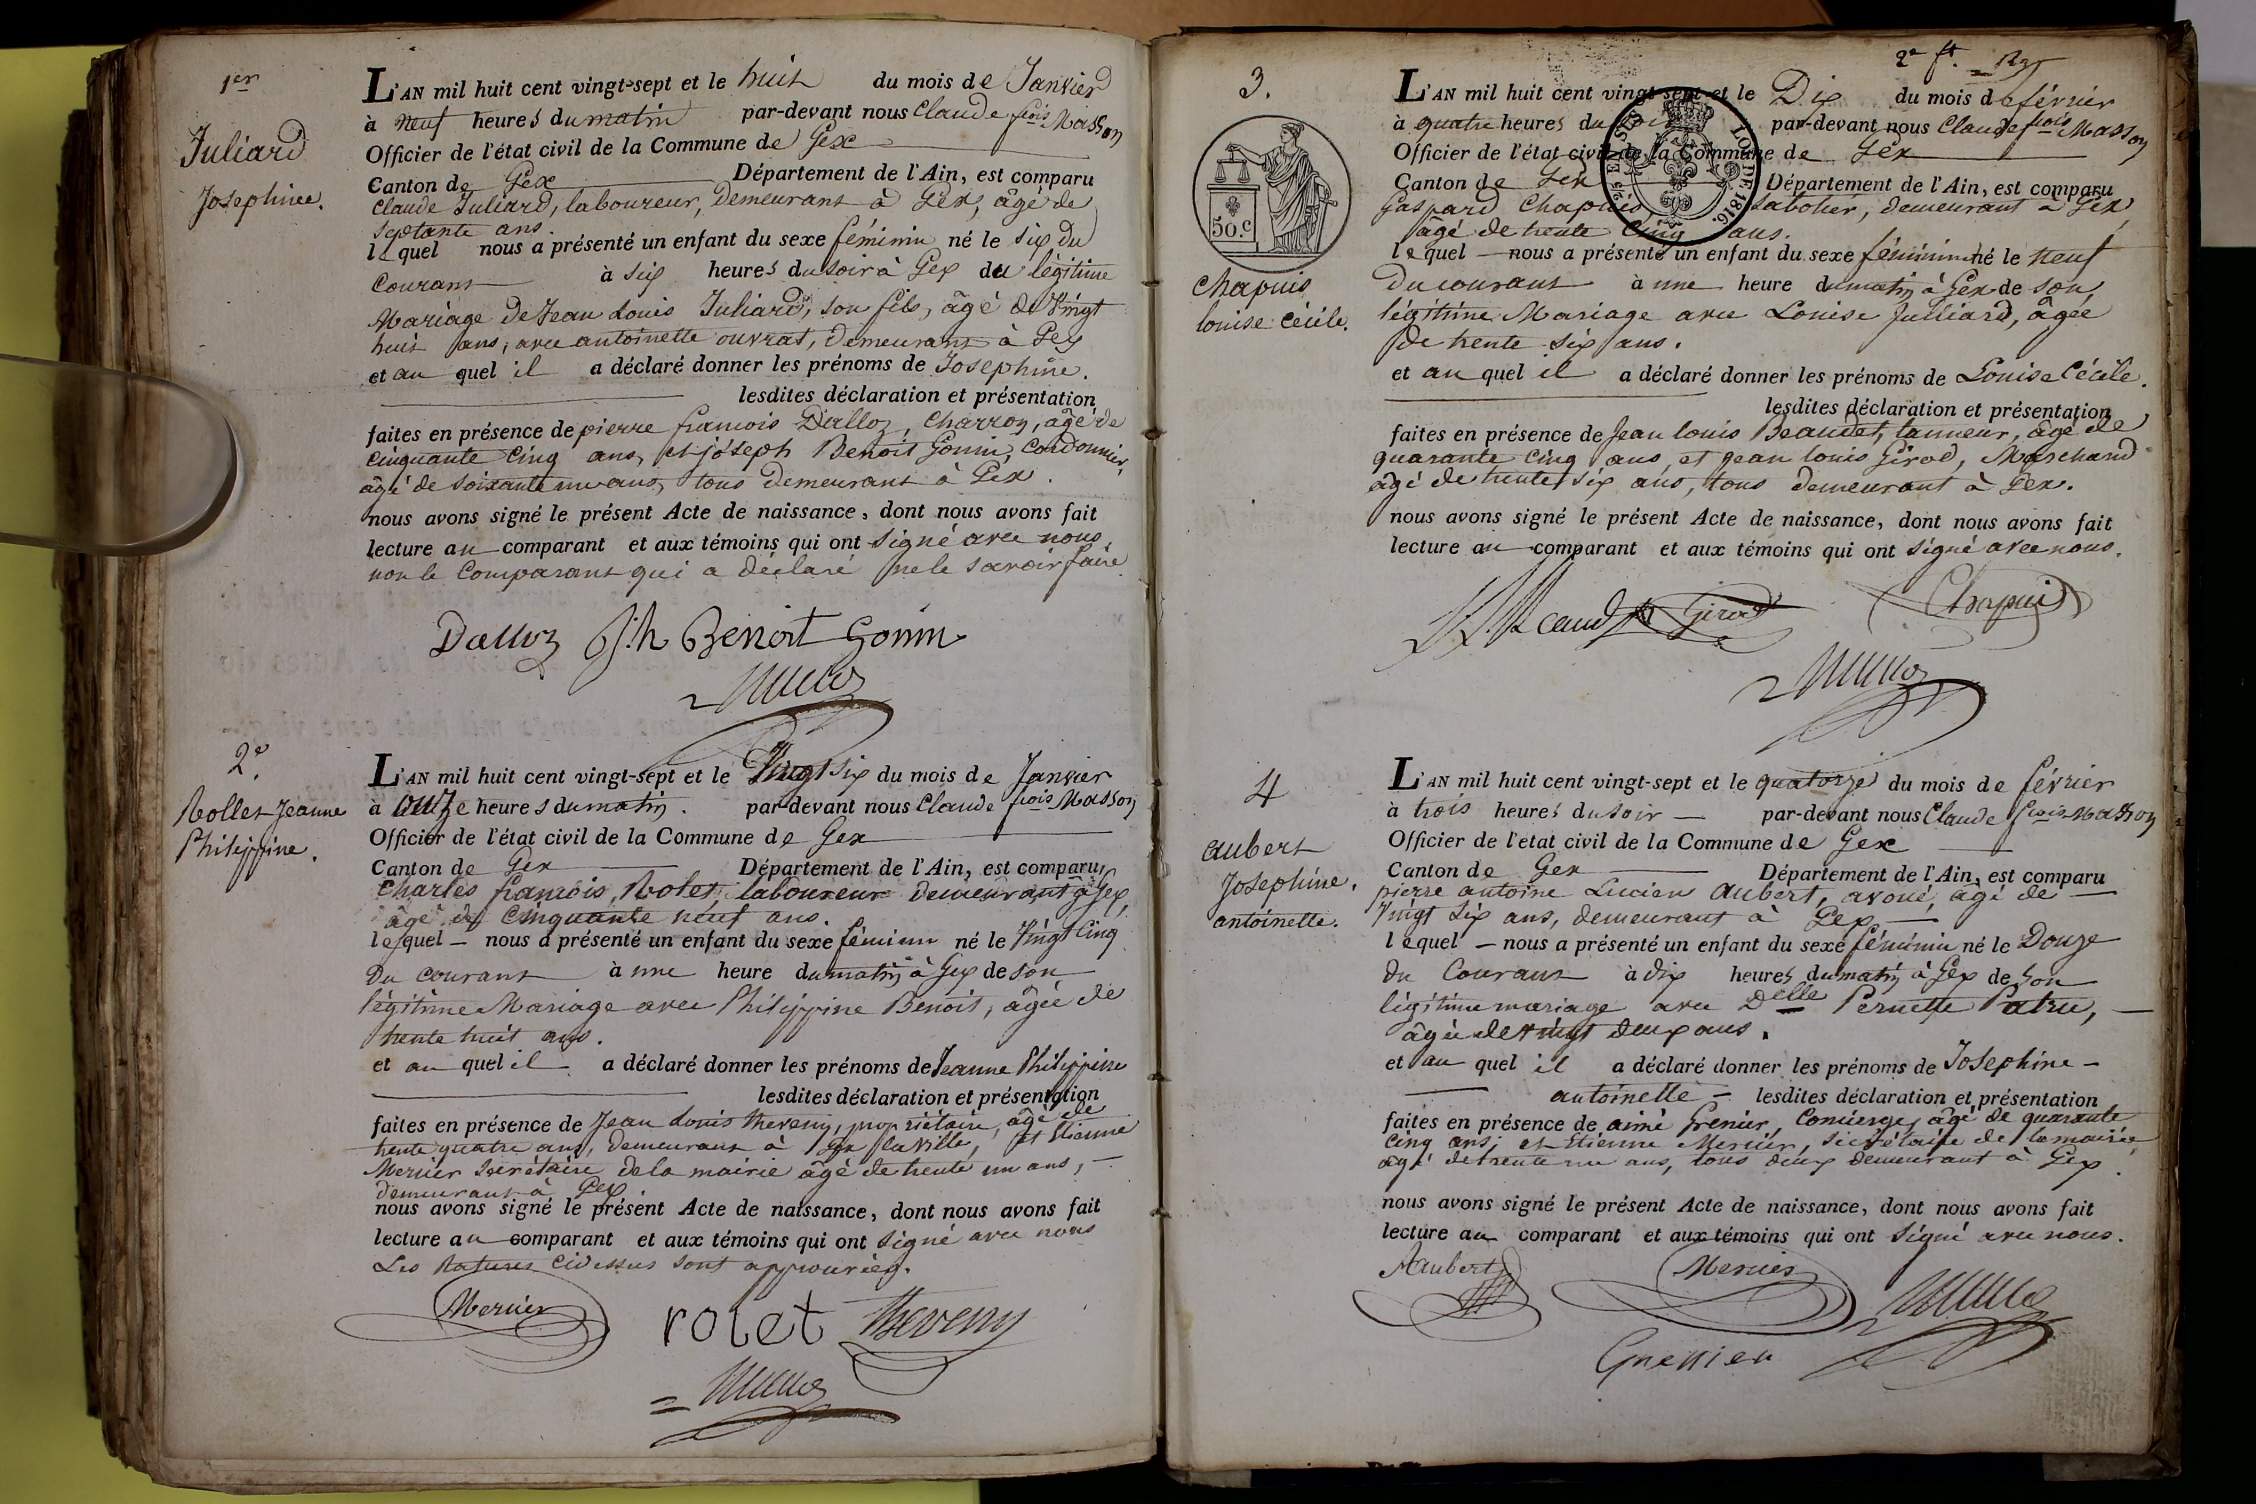 1er
Juliard
Josephine.
L'AN mil huit cent vingt-sept et le huit du mois de Janvier
à neuf heures du matin par-devant nous Claude fcois Masson
Officier de l'état civil de la Commune de Gex
Canton de Gex Département de l'Ain, est comparu
Claude Juliard, laboureur, demeurant à Gex, âgé de
septante ans.
lequel nous a présenté un enfant du sexe féminin né le six du
Courant à six heures du soir à Gex du légitime
Mariage de Jean Louis Juliard, son fils, âgé de Vingt
huit ans, avec antoinette ouvrat, demeurant à Gex
et au quel il a déclaré donner les prénoms de Josephine.
lesdites déclaration et présentation
faites en présence de pierre francois Dalloz, Charron, âgé de
cinquante cinq ans, et joseph Benoit Gonin, Cordonnier,
âgé de soixante un ans, tous demeurant à Gex.
nous avons signé le présent Acte de naissance, dont nous avons fait
lecture au comparant et aux témoins qui ont signé avec nous,
non le Comparant qui a déclaré ne le savoir faire
Dalloz Jh Benoit Gonin
2e.
Rollet Jeanne
Philippine.
L'AN mil huit cent vingt-sept et le Vingt six du mois de Janvier
à onze heures du matin. par-devant nous Claude fcois Masson
Officier de l'état civil de la Commune de Gex
Canton de Gex Département de l'Ain, est comparu
Charles francois Rolet, laboureur demeurant à Gex,
âgé de cinquante neuf ans.
lequel nous a présenté un enfant du sexe féminin né le Vingt cinq
Du courant à une heure du matin à Gex de son
légitime Mariage avec Philippine Benoit, âgée de
trente huit ans.
et au quel il a déclaré donner les prénoms de Jeanne Philippine
lesdites déclaration et présentation
faites en présence de Jean Louis theveny, propriétaire, âgé de
trente quatre ans, demeurant à Gex la ville, et Etienne
Mercier secrétaire de la mairie âgé de trente un ans,
demeurant à Gex
nous avons signé le présent Acte de naissance, dont nous avons fait
lecture au comparant et aux témoins qui ont signé avec nous
Les ratures cidessus sont approuvées.
Mercier rolet Theveny
2e ft.
3.
50.c
Chapuis
louise Cécile.
L'AN mil huit cent vingt-sept et le Dix du mois de février
à quatre heures du soir par-devant nous Claude fcois Masson
Officier de l'état civil de la Commune de Gex
Canton de Gex Département de l'Ain, est comparu
Gaspard Chapuis Sabotier, demeurant à Gex,
âgé de trente cinq ans.
LOI DE 1816.
lequel nous a présenté un enfant du sexe féminin né le neuf
Du courant à une heure du matin à Gex de son
légitime Mariage avec Louise Julliard, âgée
de trente six ans.
et au quel il a déclaré donner les prénoms de Louise Cécile.
lesdites déclaration et présentation
faites en présence de Jean louis Beaudet, tanneur, âgé de
quarante cinq ans, et jean louis Girod, Marchand
âgé de trente six ans, tous demeurant à Gex.
nous avons signé le présent Acte de naissance, dont nous avons fait
lecture au comparant et aux témoins qui ont signé avec nous.
Girod Chapuis
4
aubert
Josephine.
antoinette.
L'AN mil huit cent vingt-sept et le quatorze du mois de février
à trois heures du soir par-devant nous Claude fcois Masson
Officier de l'état civil de la Commune de Gex
Canton de Gex Département de l'Ain, est comparu
pierre antoine Lucien aubert, avoué, âgé de
Vingt six ans, demeurant à Gex
lequel nous a présenté un enfant du sexe féminin né le Douze
du Courant à dix heures du matin à Gex de son
légitime mariage avec Delle Pernette Patru,
âgée de vingt deux ans.
et au quel il a déclaré donner les prénoms de Josephine
antoinette lesdites déclaration et présentation
faites en présence de aimé Grenier, Concierge, âgé de quarante
Cinq ans; et Etienne Mercier, secrétaire de la mairie,
âgé de trente un ans, tous deux demeurant à Gex.
nous avons signé le présent Acte de naissance, dont nous avons fait
lecture au comparant et aux témoins qui ont signé avec nous.
Aubert Mercier